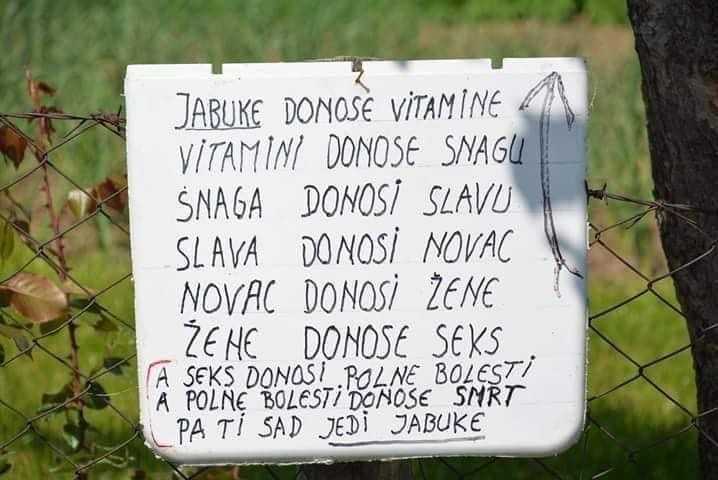 JABUKE DONOSE VITAMINE
VITAMINI DONOSE SNAGU
SNAGA DONOSI SLAVU
SLAVA DONOSI NOVAC
NOVAC DONOSI ŽENE
ŽENE DONOSE SEKS
A SEKS DONOSI POLNE BOLESTI
A POLNE BOLESTI DONOSE SMRT
PA TI SAD JEDI JABUKE